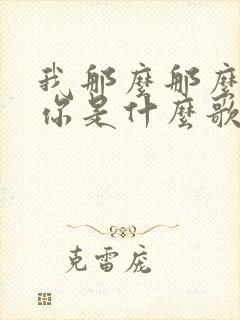 我那麼那麼
你是什麼歌
克雷庞